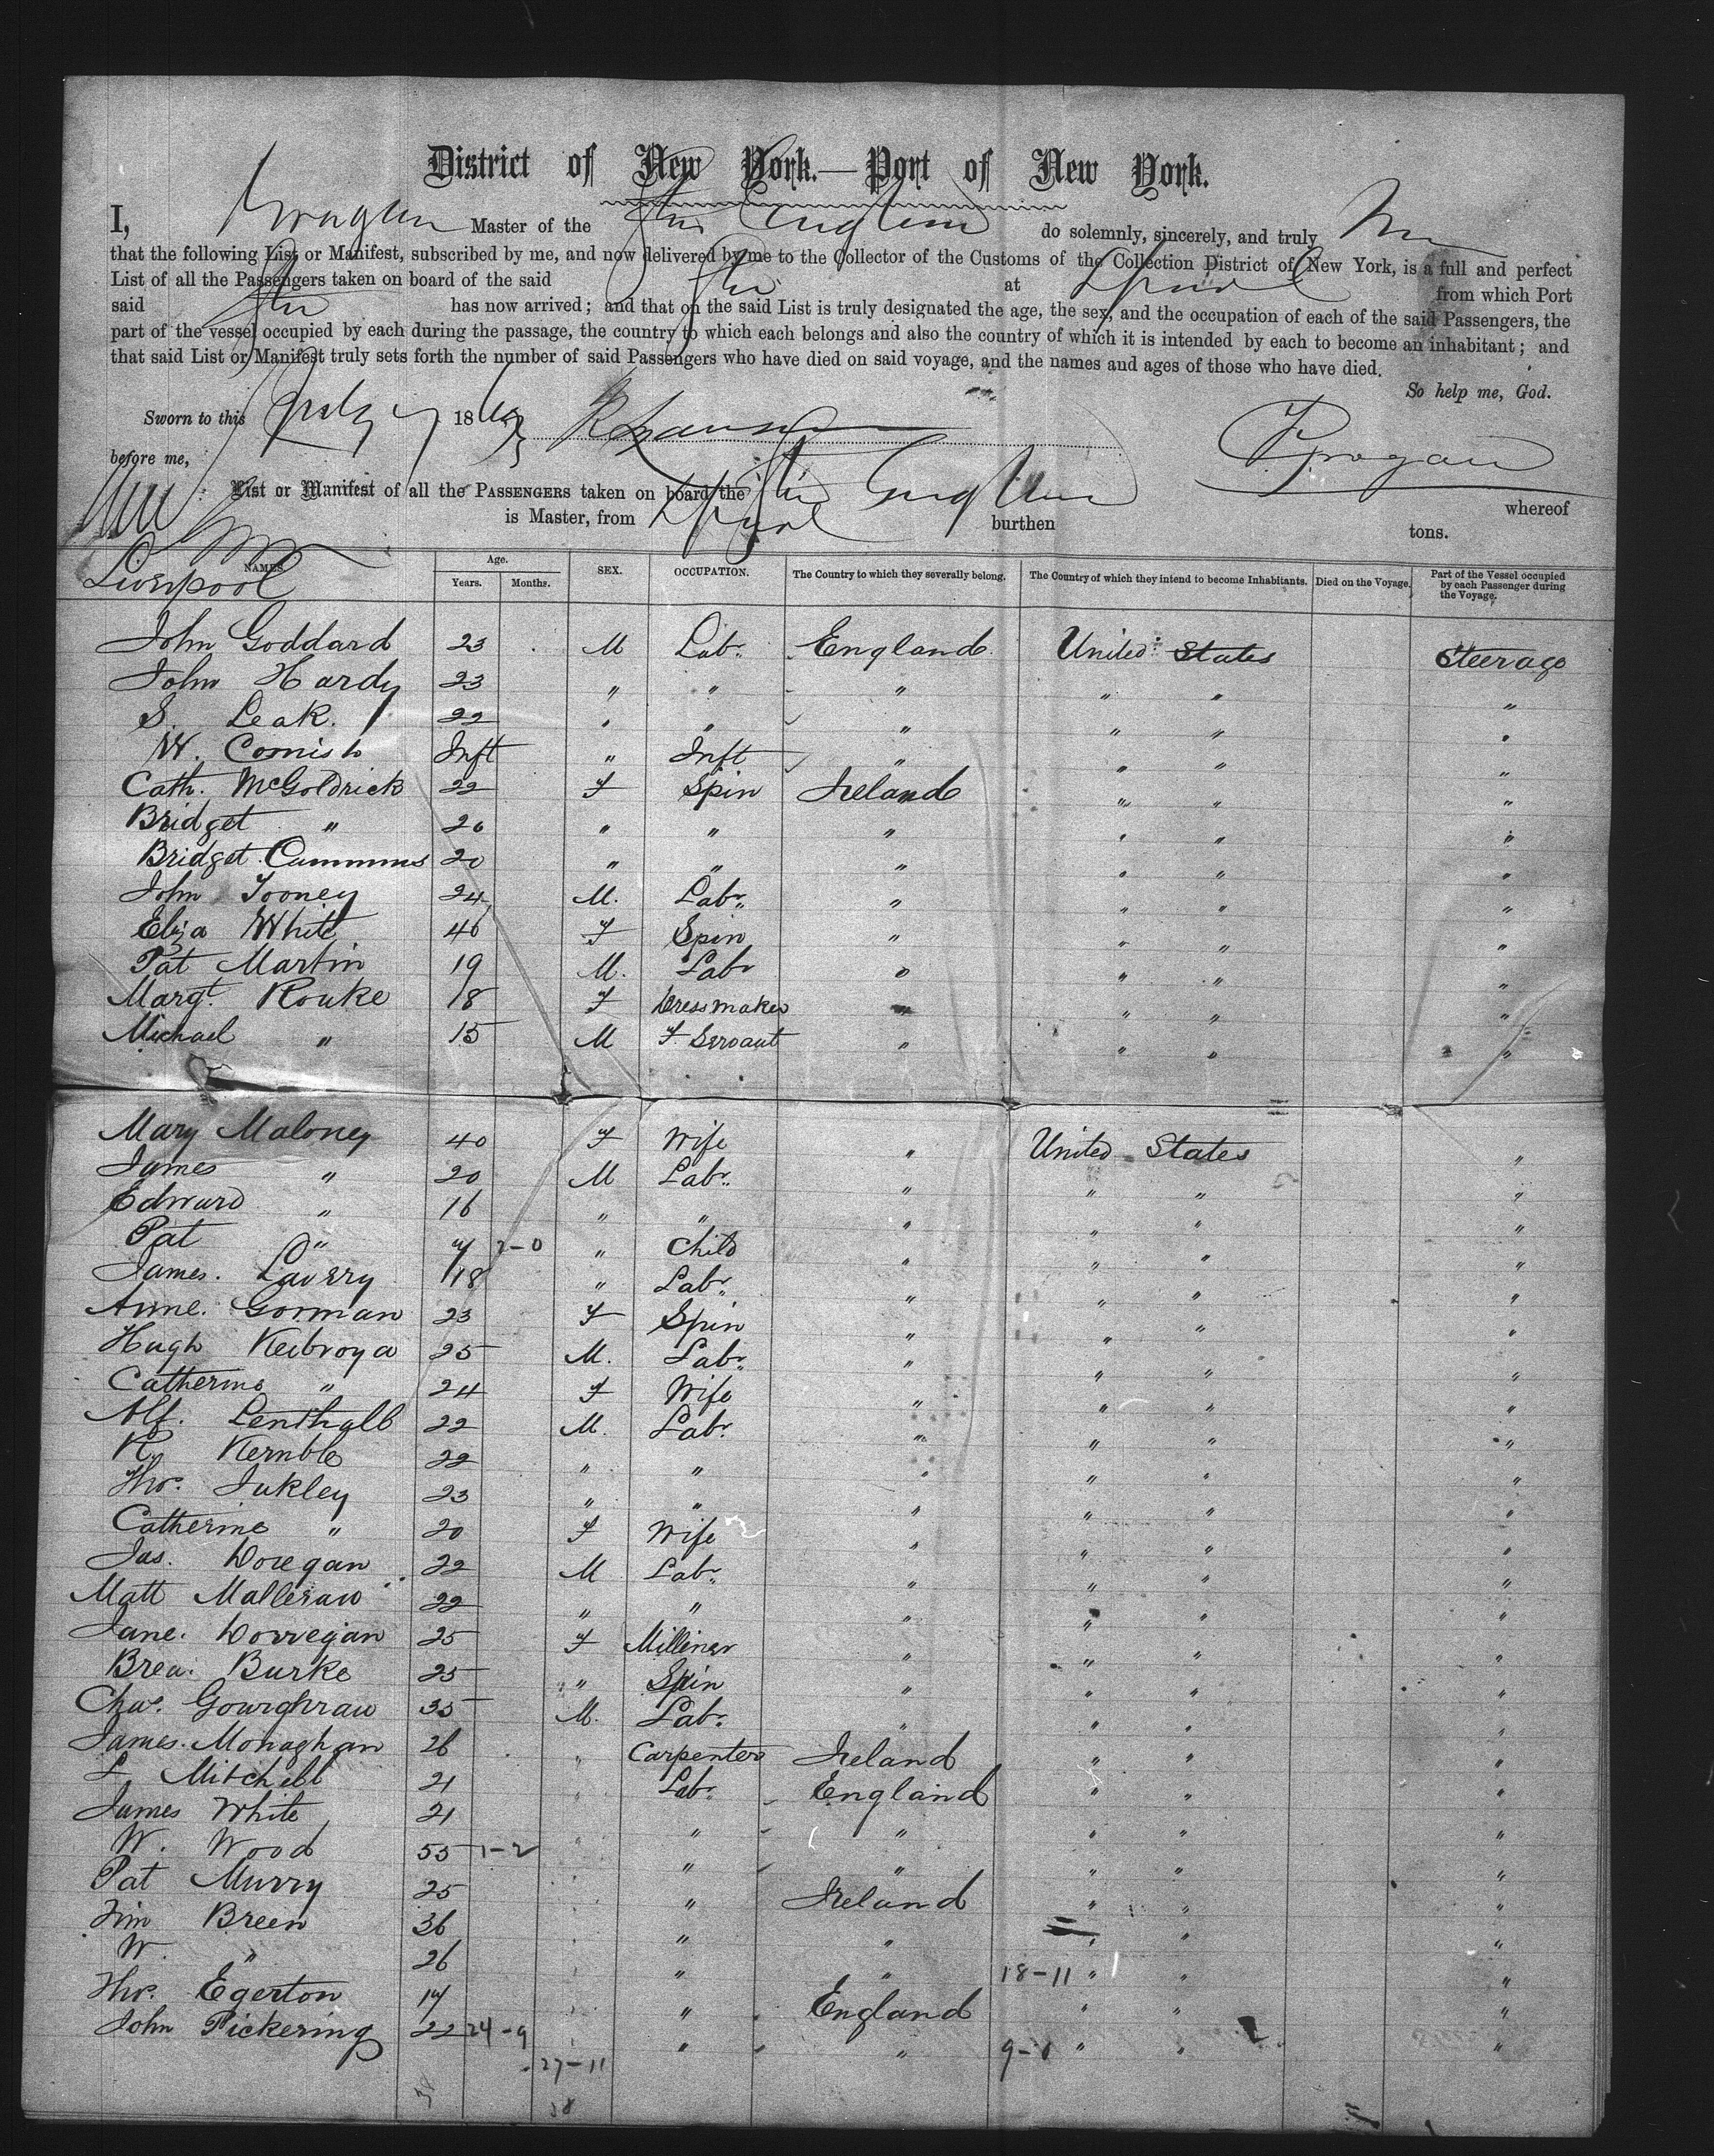 District of New York.—Port of New York.
I, Grogan Master of the Str England do solemnly, sincerely, and truly
that the following List or Manifest, subscribed by me, and now delivered by me to the Collector of the Customs of the Collection District of New York, is a full and perfect
List of all the Passengers taken on board of the said Str at Lpool from which Port
said Str has now arrived; and that on the said List is truly designated the age, the sex, and the occupation of each of the said Passengers, the
part of the vessel occupied by each during the passage, the country to which each belongs and also the country of which it is intended by each to become an inhabitant; and
that said List or Manifest truly sets forth the number of said Passengers who have died on said voyage, and the names and ages of those who have died.
So help me, God.
Sworn to this July 7 186
before me, Grogan
List or Manifest of all the PASSENGERS taken on board the Str England whereof
is Master, from Lpool burthen tons.
NAMES. Age. Years. Months. SEX. OCCUPATION. The Country to which they severally belong. The Country of which they intend to become Inhabitants. Died on the Voyage. Part of the Vessel occupied by each Passenger during the Voyage.
Liverpool
John Goddard 23 M Labr. England United States Steerage
John Hardy 23 " " " " " "
S. Leak. 22 " " " " " "
W. Cornish Inft " Inft " " " "
Cath. McGoldrick 22 F Spin Ireland " " "
Bridget " 20 " " " " " "
Bridget Cummins 20 " " " " " "
John Tooney 24 M. Labr. " " " "
Eliza White 40 F Spin " " " "
Pat Martin 19 M. Labr " " " "
Margt. Rouke 18 F Dressmaker " " " "
Michael " 15 M F. Servant " " " "
Mary Maloney 40 F Wife " United States "
James " 20 M Labr. " " " "
Edward " 16 " " " " " "
Pat " 7 2-0 " Child " " " "
James. Lavery 18 " Labr. " " " "
Anne. Gorman 23 F Spin " " " "
Hugh Keibroya 25 M. Labr. " " " "
Catherine " 24 F Wife " " " "
Alf. Lenthall 22 M. Labr. " " " "
R. Kernble 22 " " " " " "
Thos. Jukley 23 " " " " " "
Catherine " 20 F Wife " " " "
Jas. Doregan 22 M Labr. " " " "
Matt Malleraw 22 " " " " " "
Jane. Dorregan 25 F Milliner " " " "
Brea. Burke 25 " Spin " " " "
Chas. Gourghraw 35 M. Labr. " " " "
James. Monaghan 26 " Carpenter Ireland " " "
L Mitchell 21 " Labr. England " " "
James White 21 " " " " " "
W. Wood 55 1-2 " " " " " "
Pat Murry 25 " " Ireland " " "
Jim Breen 36 " " " " " "
W. " 26 " " " 18-11 " " "
Thos. Egerton 17 " " England " " "
John Pickering 22 24-9 " " " 9-0 " " "
27-11
38